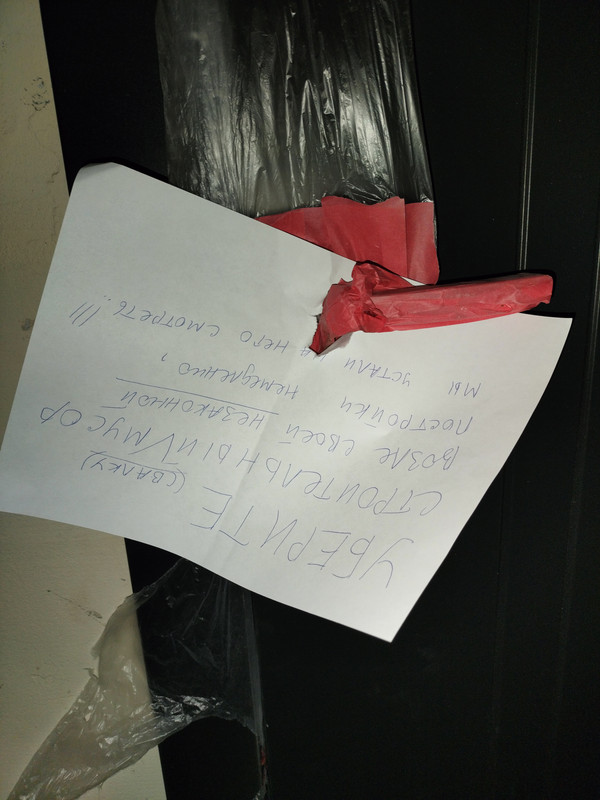 УБЕРИТЕ
(СВАЛКУ)
СТРОИТЕЛЬНЫЙ V МУСОР
ВОЗЛЕ СВОЕЙ НЕЗАКОННОЙ
ПОСТРОЙКИ НЕМЕДЛЕННО,
МЫ УСТАЛИ НА НЕГО СМОТРЕТЬ!!!